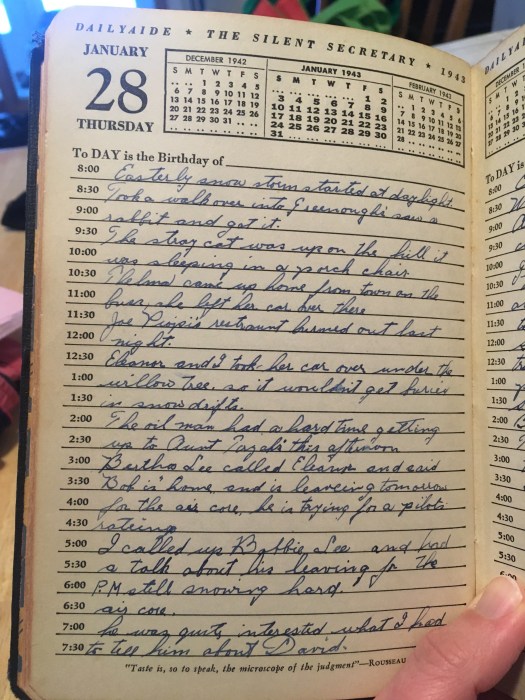 DAILYAIDE ★ THE SILENT SECRETARY ★ 1943
JANUARY
28
THURSDAY
DECEMBER 1942
S M T W T F S
.. .. 1 2 3 4 5
6 7 8 9 10 11 12
13 14 15 16 17 18 19
20 21 22 23 24 25 26
27 28 29 30 31 .. ..
JANUARY 1943
S M T W T F S
.. .. .. .. .. 1 2
3 4 5 6 7 8 9
10 11 12 13 14 15 16
17 18 19 20 21 22 23
24 25 26 27 28 29 30
31
FEBRUARY 1943
S M T W T F S
.. 1 2 3 4 5 6
7 8 9 10 11 12 13
14 15 16 17 18 19 20
21 22 23 24 25 26 27
28
To DAY is the Birthday of
8:00 Easterly snow storm started at daylight.
8:30 Took a walk over into Greenough's saw a
9:00 rabbit and got it.
9:30 The stray cat was up on the hill it
10:00 was sleeping in a porch chair.
10:30 Thelma came up home from town on the
11:00 buss, she left her car over there
11:30 Joe restraunt burned out last
12:00 night.
12:30 Eleanor and I took her car over under the
1:00 willow tree, so it wouldn't get buried
1:30 in snow drifts.
2:00 The oil man had a hard time getting
2:30 up to Aunt this afternoon
3:00 Bertha Lee called Eleanor and said
3:30 Bob is home and is leaveing tomorrow
4:00 for the air core, he is trying for a pilots
4:30 rateing
5:00 I called up Bobbie Lee and had
5:30 a talk about his leaving for the
6:00 P.M still snowing hard.
6:30 air core.
7:00 he was quite interested what I had
7:30 to tell him about David.
"Taste is, so to speak, the microscope of the judgment"—ROUSSEAU